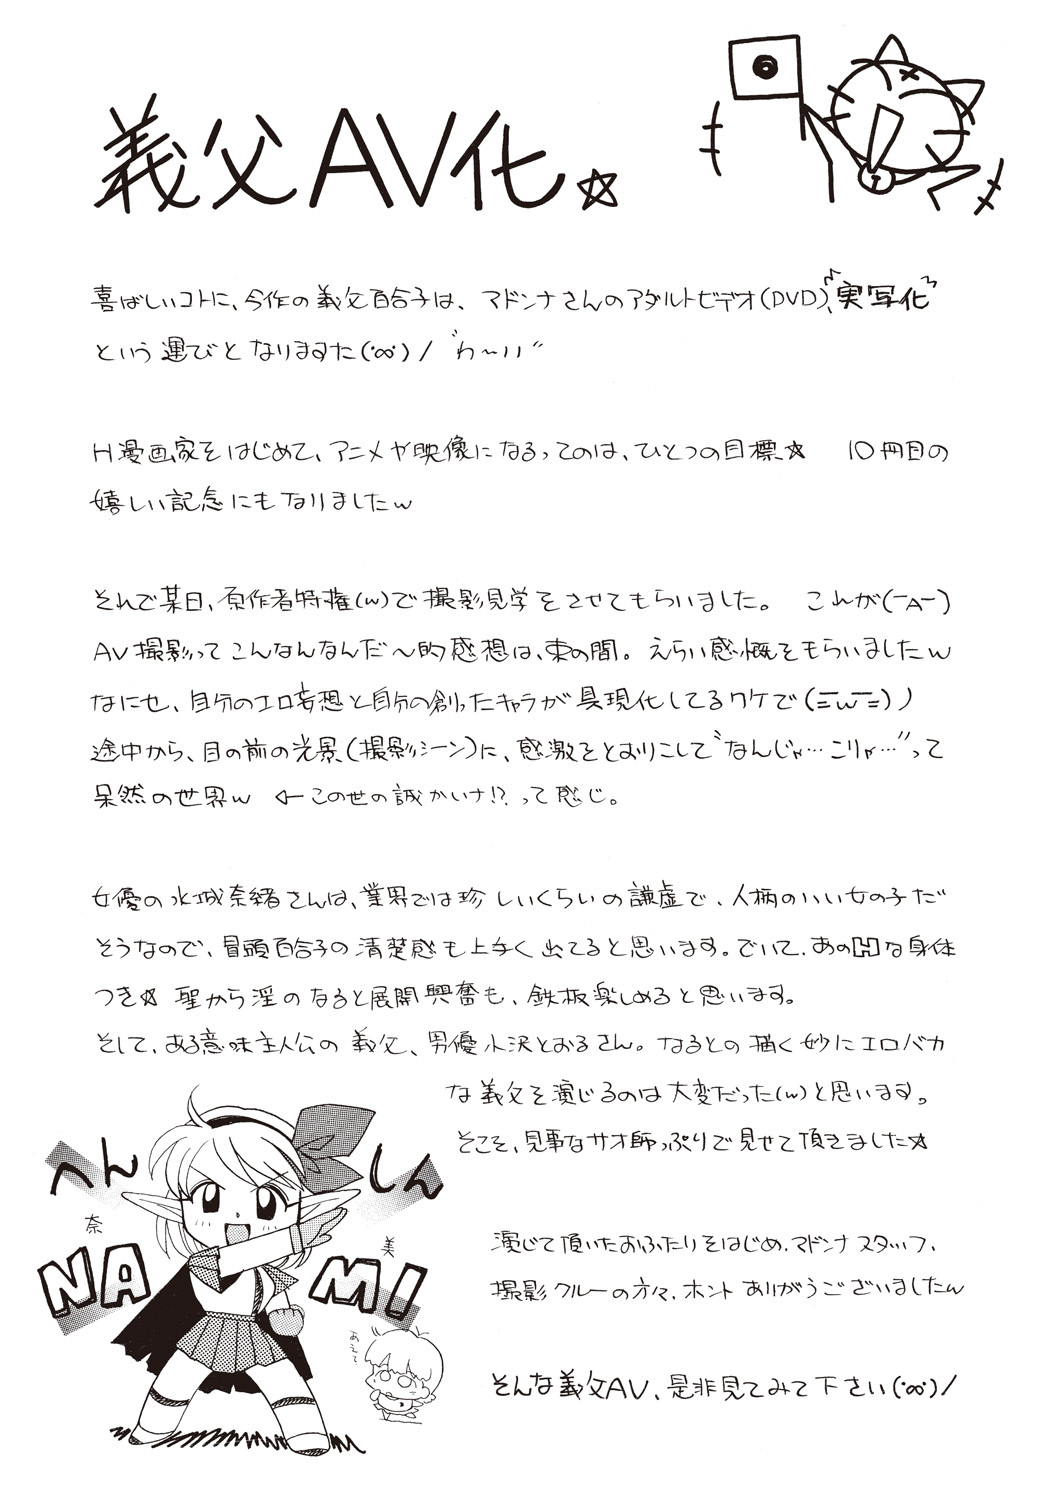 義父AV化☆
喜ばしいコトに、今作の義父百合子は、マドンナさんのアダルトビデオ(DVD)、"実写化"
という運びとなりますた(°∞°)/ "わ〜い"
H漫画家をはじめて、アニメや映像になるってのは、ひとつの目標☆ 10冊目の
嬉しい記念にもなりましたw
それで某日、原作者特権(w)で撮影見学をさせてもらいました。 これが(￣A￣)
AV撮影ってこんなんなんだ〜的感想は、束の間。えらい感慨をもらいましたw
なにせ、自分のエロ妄想と自分の創ったキャラが具現化してるワケで(ΞwΞ)ノ
途中から、目の前の光景(撮影シーン)に、感激をとおりこして"なんじゃ…こりゃ…"って
呆然の世界w ←この世の誠かいナ!?って感じ。
女優の水城奈緒さんは、業界では珍しいくらいの謙虚で、人柄のいい女の子だ
そうなので、冒頭百合子の清楚感も上手く出てると思います。でいて、あのHな身体
つき☆ 聖から淫のなると展開興奮も、鉄板楽しめると思います。
そして、ある意味主人公の義父、男優小沢とおるさん。なるとの描く妙にエロバカ
な義父を演じるのは大変だった(w)と思います。
そこそ、見事なサオ師っぷりで見せて頂きました☆
へんしん
奈 美
NAMI
あえて
演じて頂いたおふたりをはじめ、マドンナスタッフ、
撮影クルーの方々、ホントありがうございましたw
そんな義父AV、是非見てみて下さい(°∞°)/